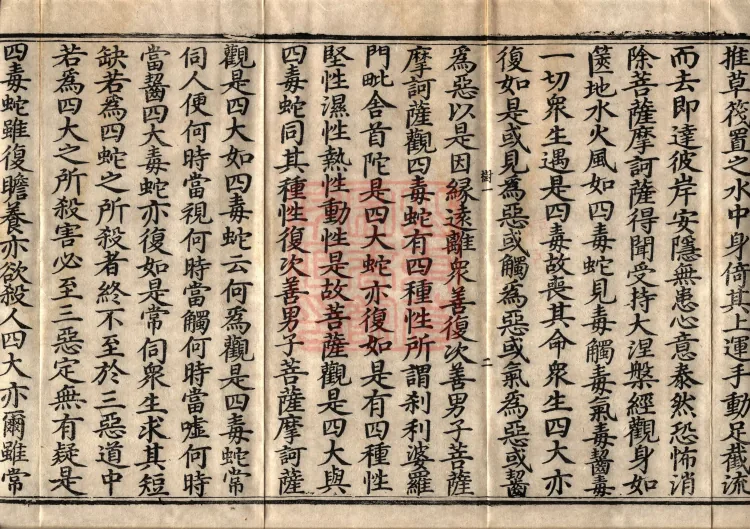 推草筏置之水中身倚其上運手動足截流
而去即達彼岸安隱無患心意泰然恐怖消
除菩薩摩訶薩得聞受持大涅槃經觀身如
篋地水火風如四毒蛇見毒觸毒氣毒齧毒
一切衆生遇是四毒故喪其命衆生四大亦
復如是或見爲惡或觸爲惡或氣爲惡或齧
樹一
二
爲惡以是因緣遠離衆善復次善男子菩薩
摩訶薩觀四毒蛇有四種性所謂刹利婆羅
門毗舍首陀是四大蛇亦復如是有四種性
堅性濕性熱性動性是故菩薩觀是四大與
四毒蛇同其種性復次善男子菩薩摩訶薩
觀是四大如四毒蛇云何爲觀是四毒蛇常
伺人便何時當視何時當觸何時當噓何時
當齧四大毒蛇亦復如是常伺衆生求其短
缺若爲四蛇之所殺者終不至於三惡道中
若爲四大之所殺害必至三惡定無有疑是
四毒蛇雖復瞻養亦欲殺人四大亦爾雖常